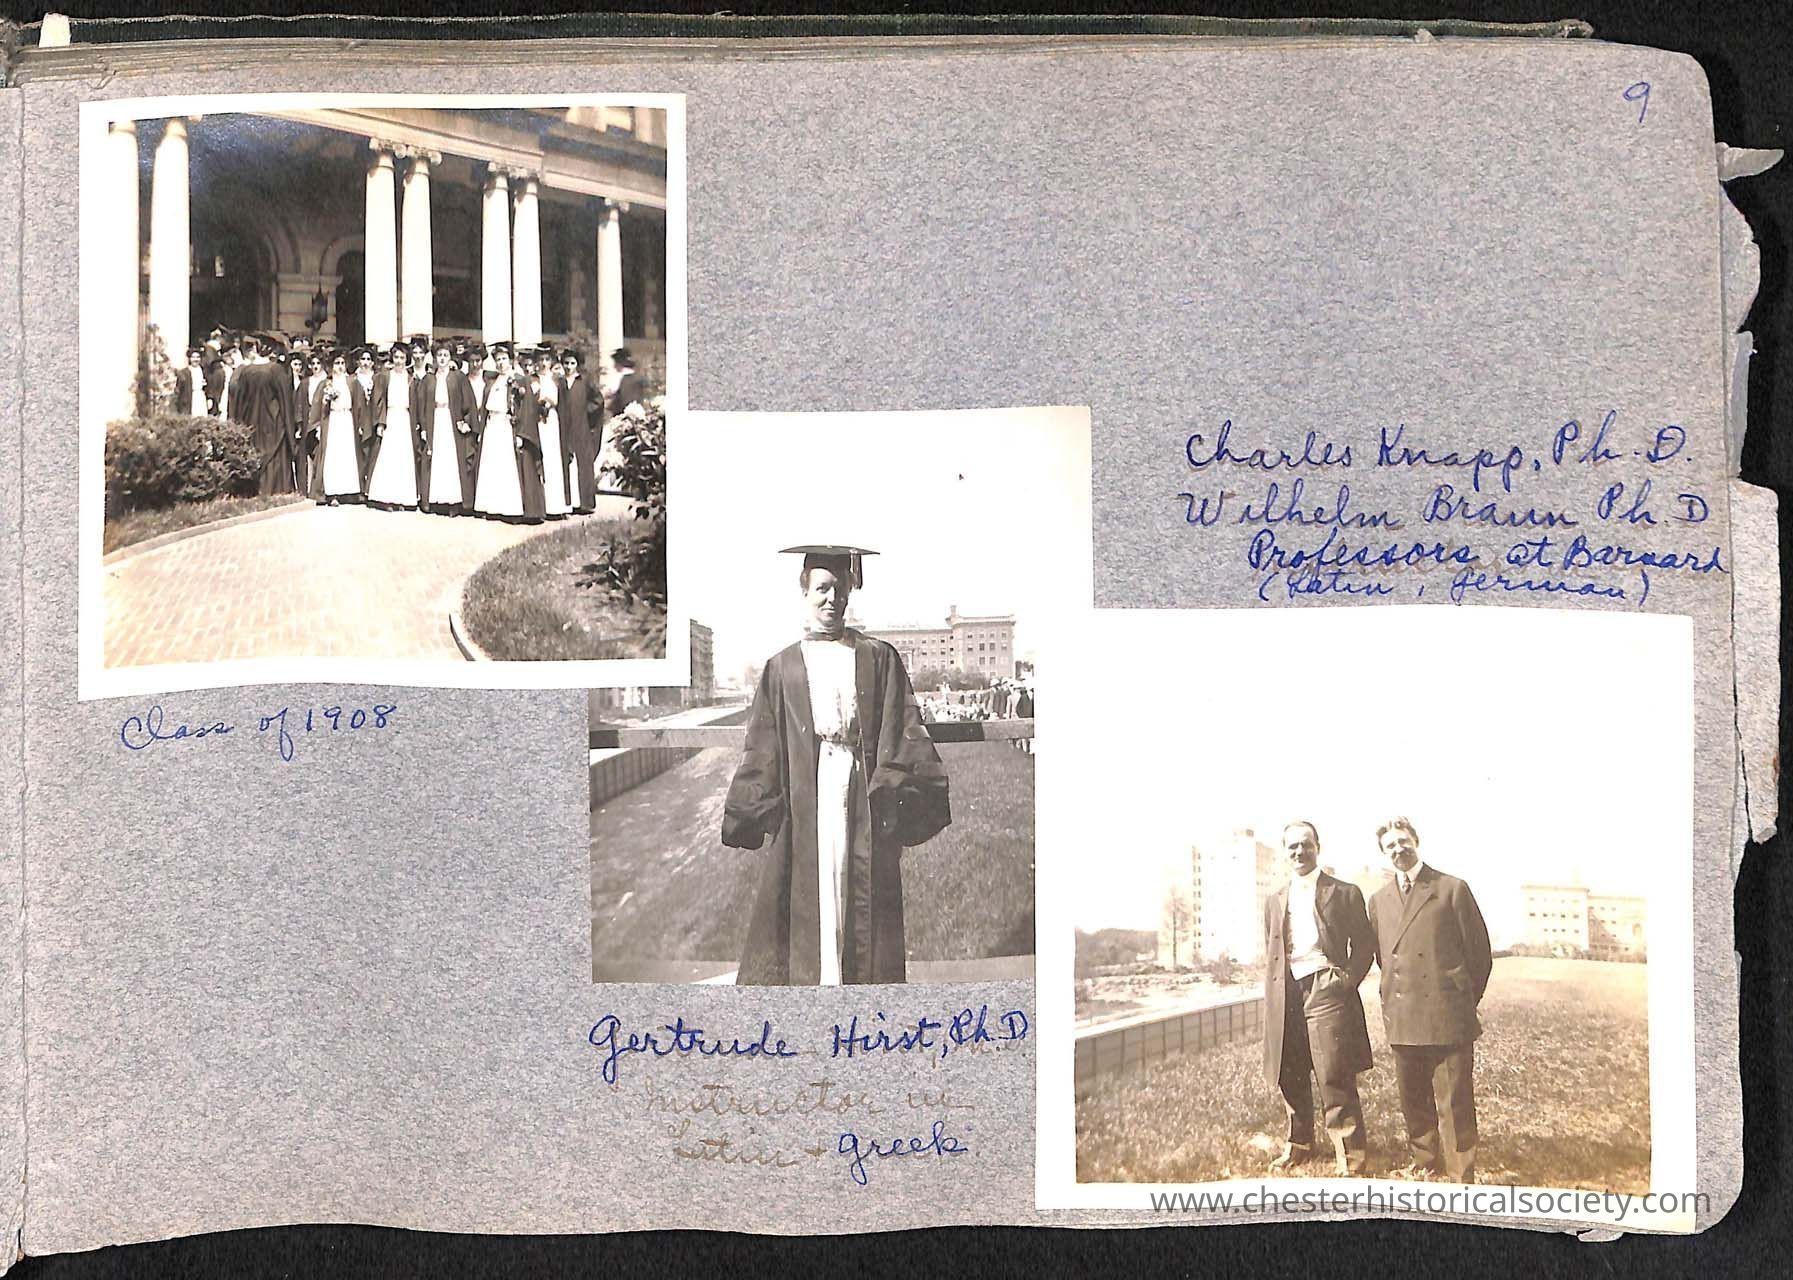 9
Charles Knapp, Ph.D.
Wilhelm Braun Ph.D
Professors at Barnard
(Latin, German)
Class of 1908
Gertrude Hirst, Ph.D
Instructor in
Latin + Greek
www.chesterhistoricalsociety.com